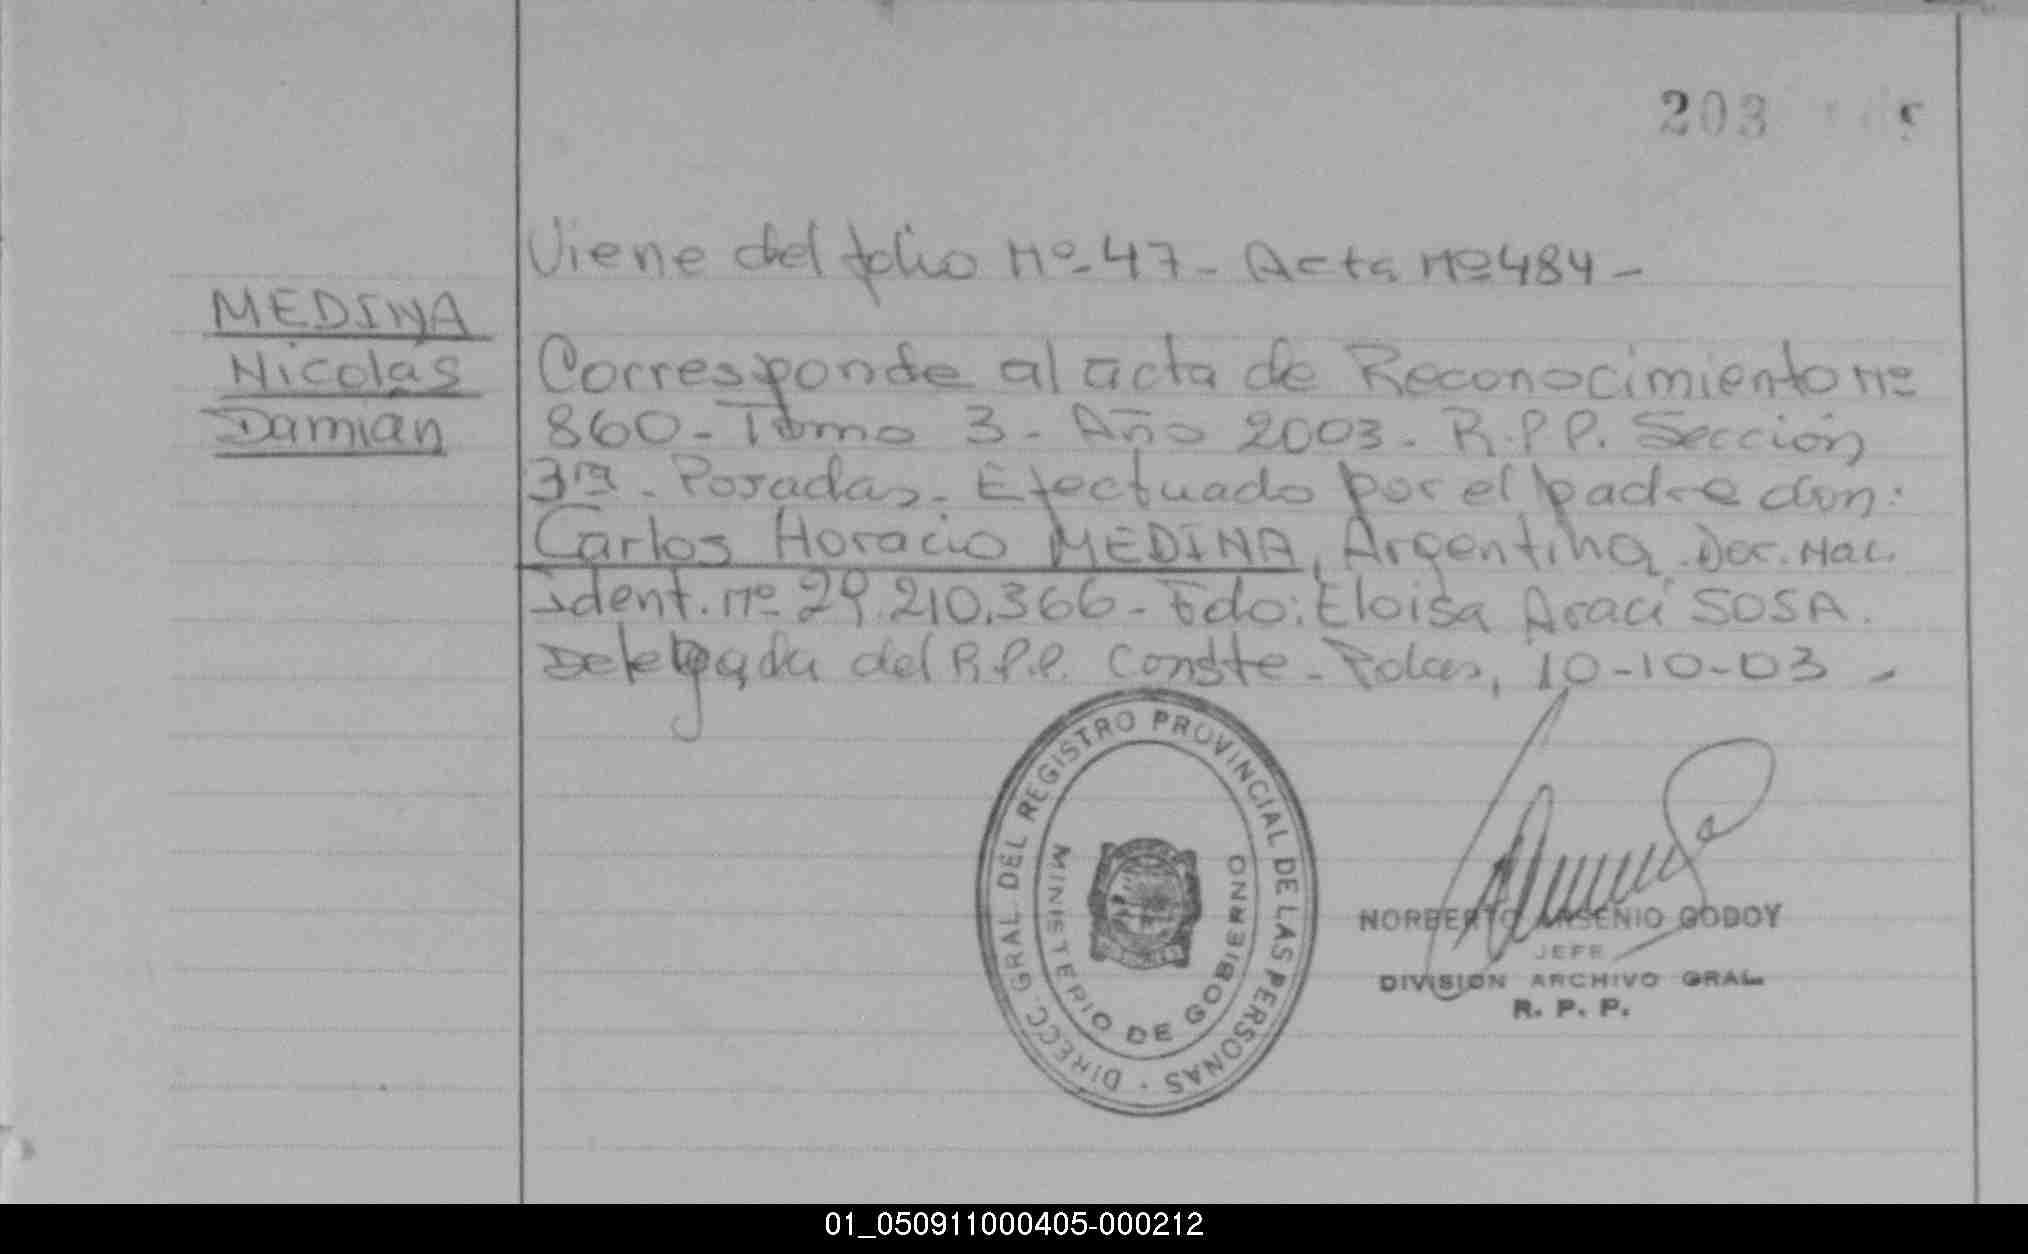 203
Viene del folio Nº-47- Acta Nº484-
MEDINA
Nicolás
Damian
Corresponde al acta de Reconocimiento Nº
860-Tomo 3-Año 2003-R.P.P. Sección
3ra-Posadas-Efectuado por el padre don:
Carlos Horacio MEDINA, Argentina. Doc. Nac.
Ident. Nº 29.210.366-Fdo: Eloisa Araci SOSA.
Delegada del R.P.P. Conste-Pdas, 10-10-03-
DIRECC GRAL DEL REGISTRO PROVINCIAL DE LAS PERSONAS
MINISTERIO DE GOBIERNO
NORBERTO ARSENIO GODOY
JEFE
DIVISION ARCHIVO GRAL.
R. P. P.
01_050911000405-000212